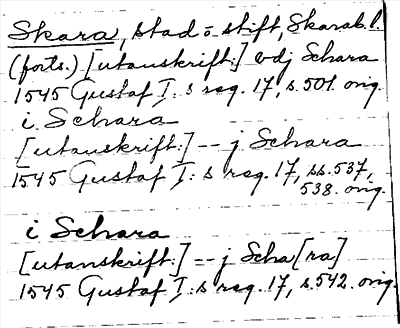 Skara, stad o stift, Skarab. l.
(forts.) [utanskrift:] vdj Schara
1545 Gustaf I:s reg. 17, s. 501. orig.
i Schara
[utanskrift:] -- j Schara
1545 Gustaf I:s reg. 17, ss. 537,
538. orig.
i Schara
[utanskrift:] -- j Scha[ra]
1545 Gustaf I:s reg. 17, s. 542. orig.